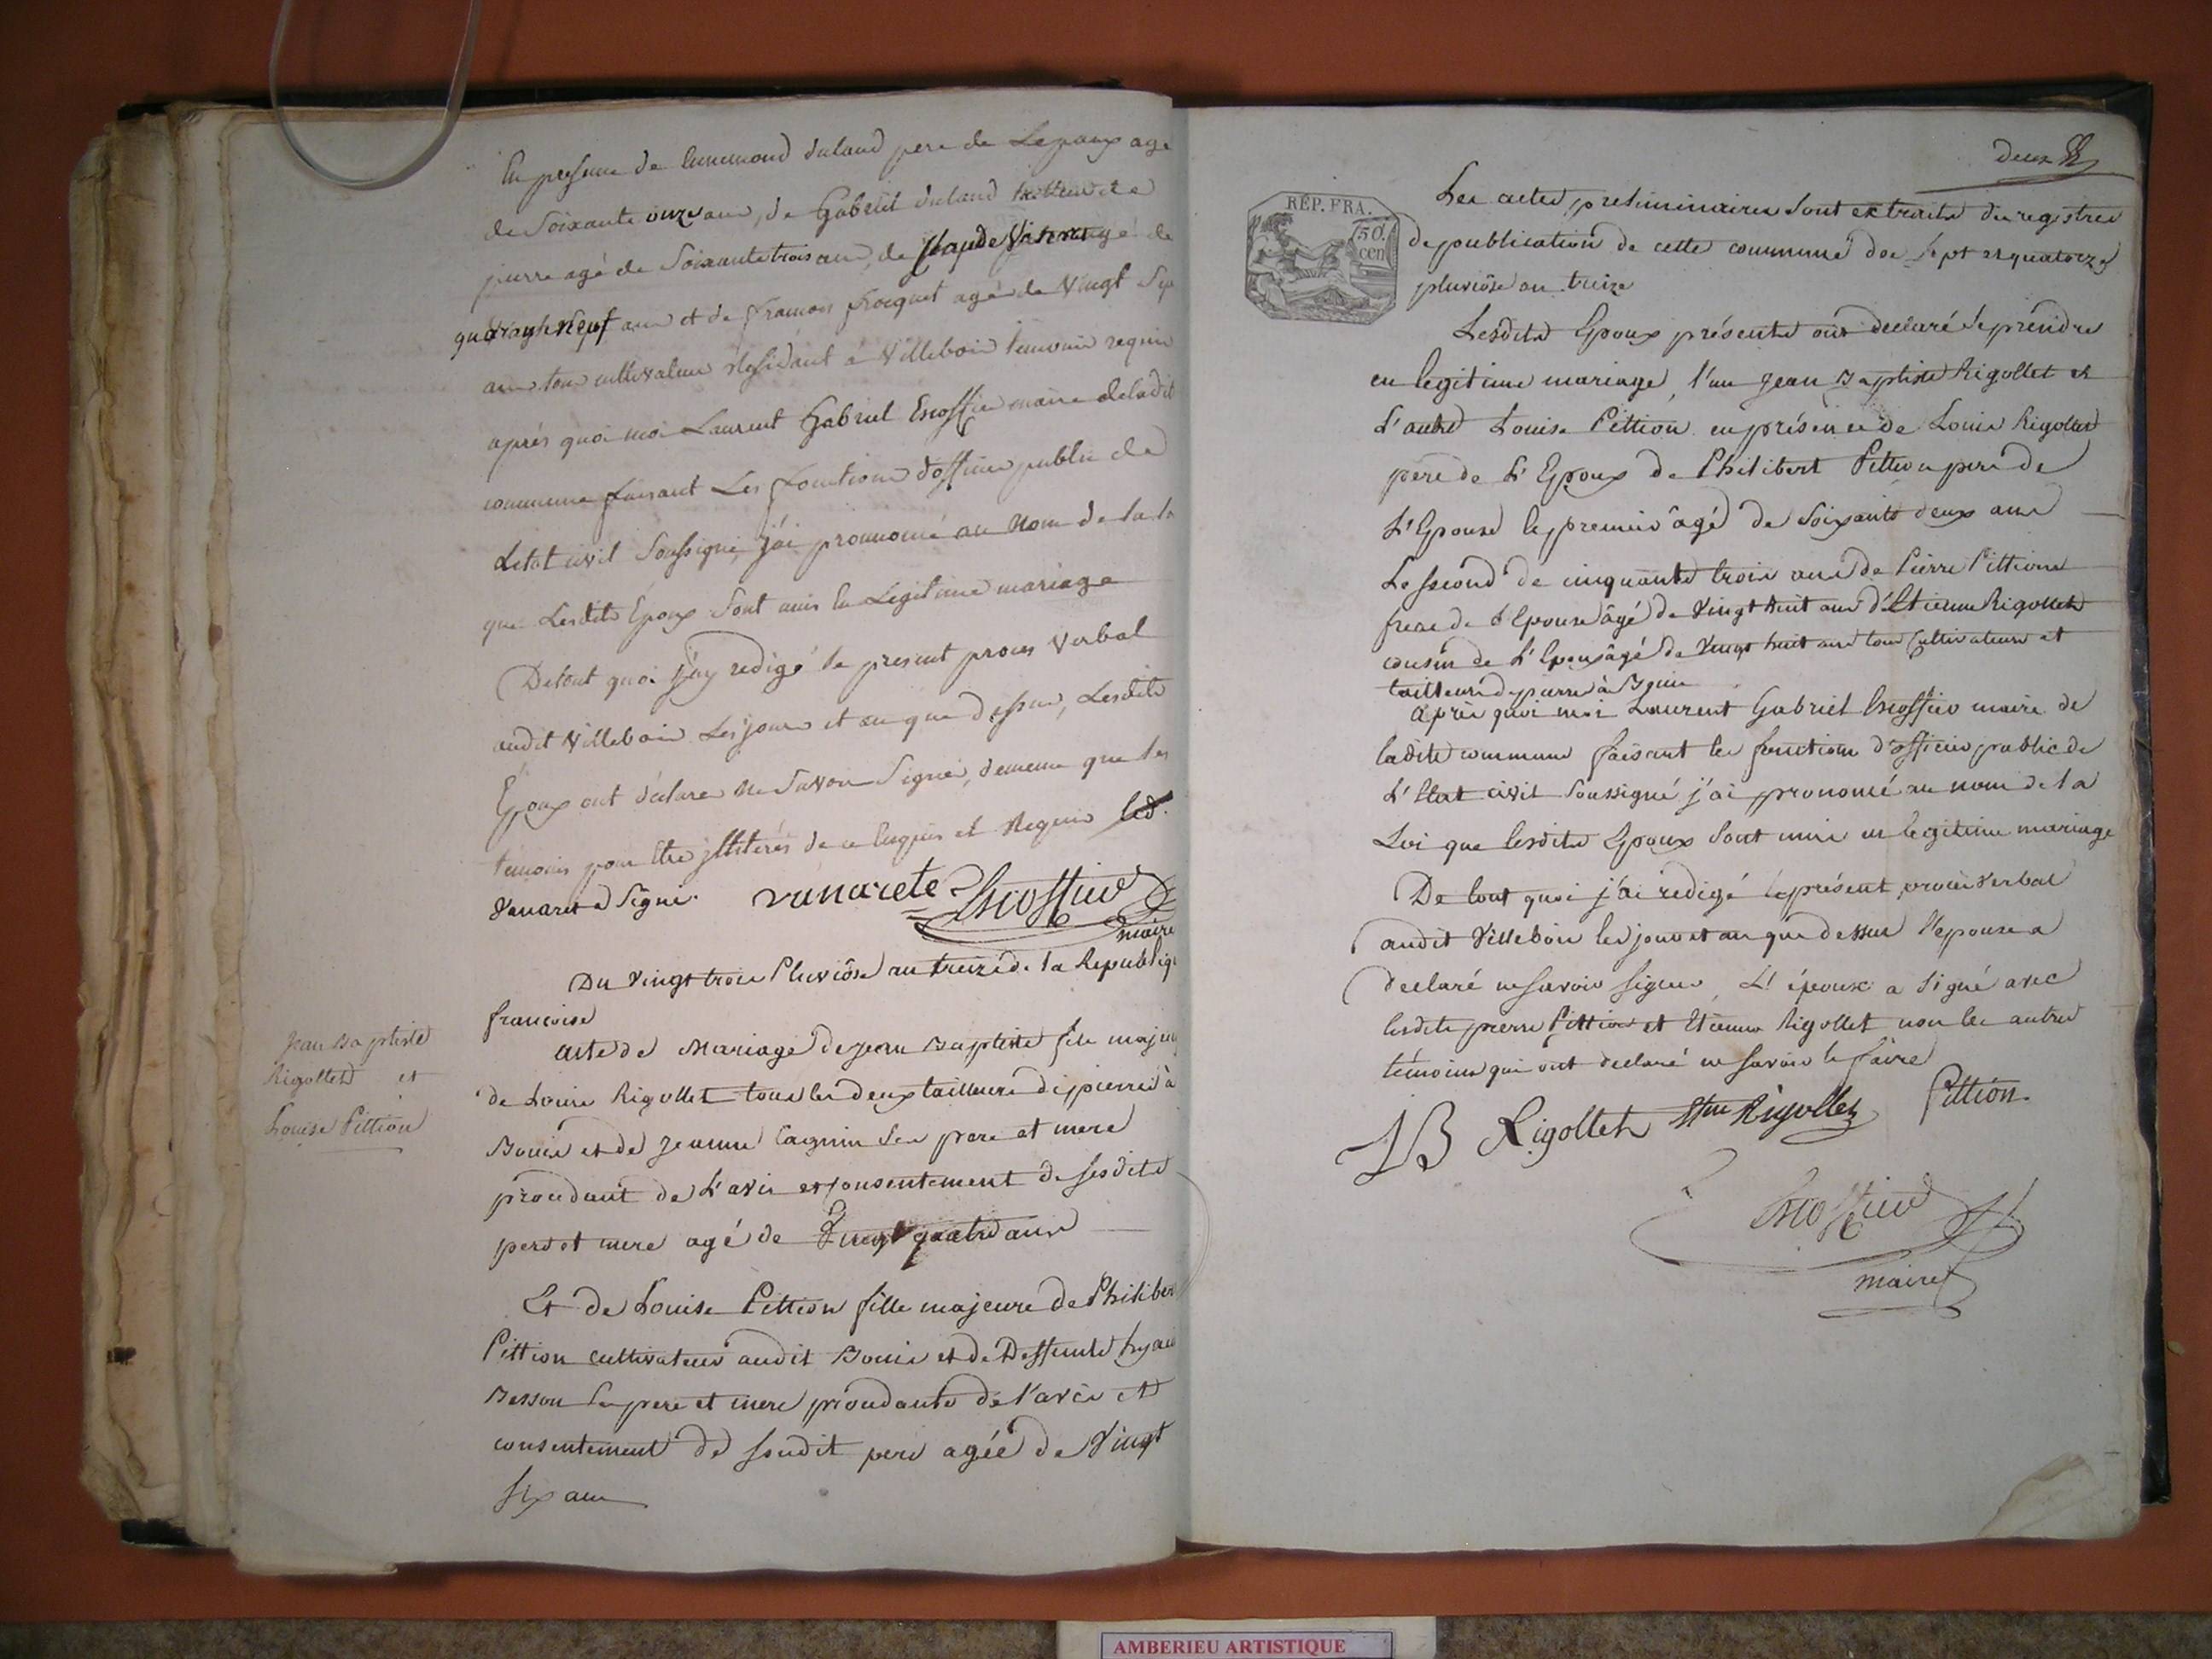 En presence de Ennemond Duland pere de Lepoux agé
de Soixante onze ans, de Gabriel Duland
pierre agé de Soixante trois ans, de Claude Vanaret agé de
quarante Neuf ans et de francois froquet agé de Vingt Six
ans tous cultivateur residant a Villebois temoins requis
après quoi moi Laurent Gabriel Escoffier maire deladit
commune faisant Les fonctions d'officier public de
Letat civil Soussigné, j'ai prononcé au Nom de la lo
que Lesdits Epoux Sont unis En Legitime mariage
De tout quoi j'ay redigé le present proces Verbal
audit Villebois Les jours et an que dessus, Lesdits
Epoux ont déclaré Ne Savoir Signer, de meme que les
temoins pour être jllitérés de ce Enquis et Requis led.
Vanaret a Signé. vanarete Escoffier
maire
Du Vingt trois Pluviôse an treize de la Republiq
francoise
Jean Baptiste
Rigollet et
Louise Pittion
acte de Mariage de Jean Baptiste fils majeur
de Louis Rigollet tous les deux tailleurs de pierres à
Bouis et de Jeanne Cagnin ses pere et mere
procédant de L'avis et consentement de sesdits
pere et mere agé de Vingt quatre ans
Et de Louise Pittion fille majeure de Philiber
Pittion cultivateur audit Bouis et de Deffunte
Besson ses pere et mere procédante de l'avis et
consentement de sondit pere agée de Vingt
six ans
deux
RÉP. FRA.
50.
cen
Les actes preliminaires Sont extraits des registres
de publication de cette commune des Sept et quatorze
pluviôse an treize
Lesdits Epoux présents ont declaré se prendre
en legitime mariage, l'un Jean Baptiste Rigollet et
L'autre Louise Pittion en présence de Louis Rigollet
père de L'Epoux de Philibert Pittion pere de
L'Epouse le premier âgé de Soixante deux ans
Le second de cinquante trois ans de Pierre Pittion
frere de L'Epouse âgé de Vingt huit ans d'Etienne Rigollet
cousin de L'Epoux âgé de Vingt huit ans tous Cultivateurs et
tailleurs de pierre à Bouis
après quoi moi Laurent Gabriel Escoffier maire de
ladite commune faisant les fonctions d'officier public de
L'Etat civil Soussigné j'ai prononcé au nom de la
Loi que lesdits Epoux Sont unis en legitime mariage
De tout quoi j'ai redigé le présent procès Verbal
audit Villebois les jour et an que dessus l'epouse a
declaré ne savoir signer, L'époux a signé avec
lesdits pierre Pittion et Etienne Rigollet non les autres
témoins qui ont declaré ne savoir le faire
JB Rigollet Etne Rigollet Pittion.
Escoffier
maire
AMBERIEU ARTISTIQUE